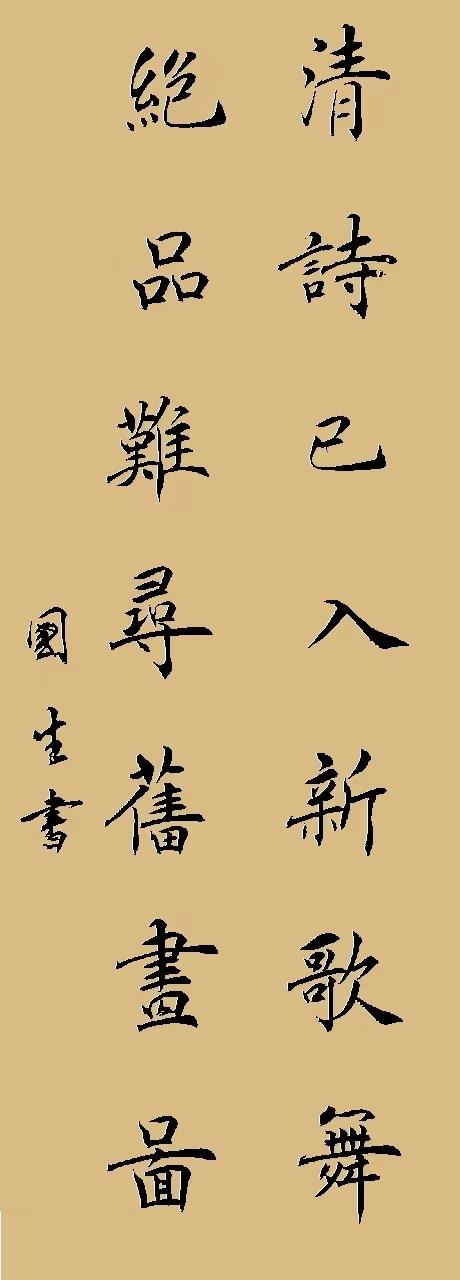 清詩已入新歌舞
絕品難尋舊畫啚
國生書